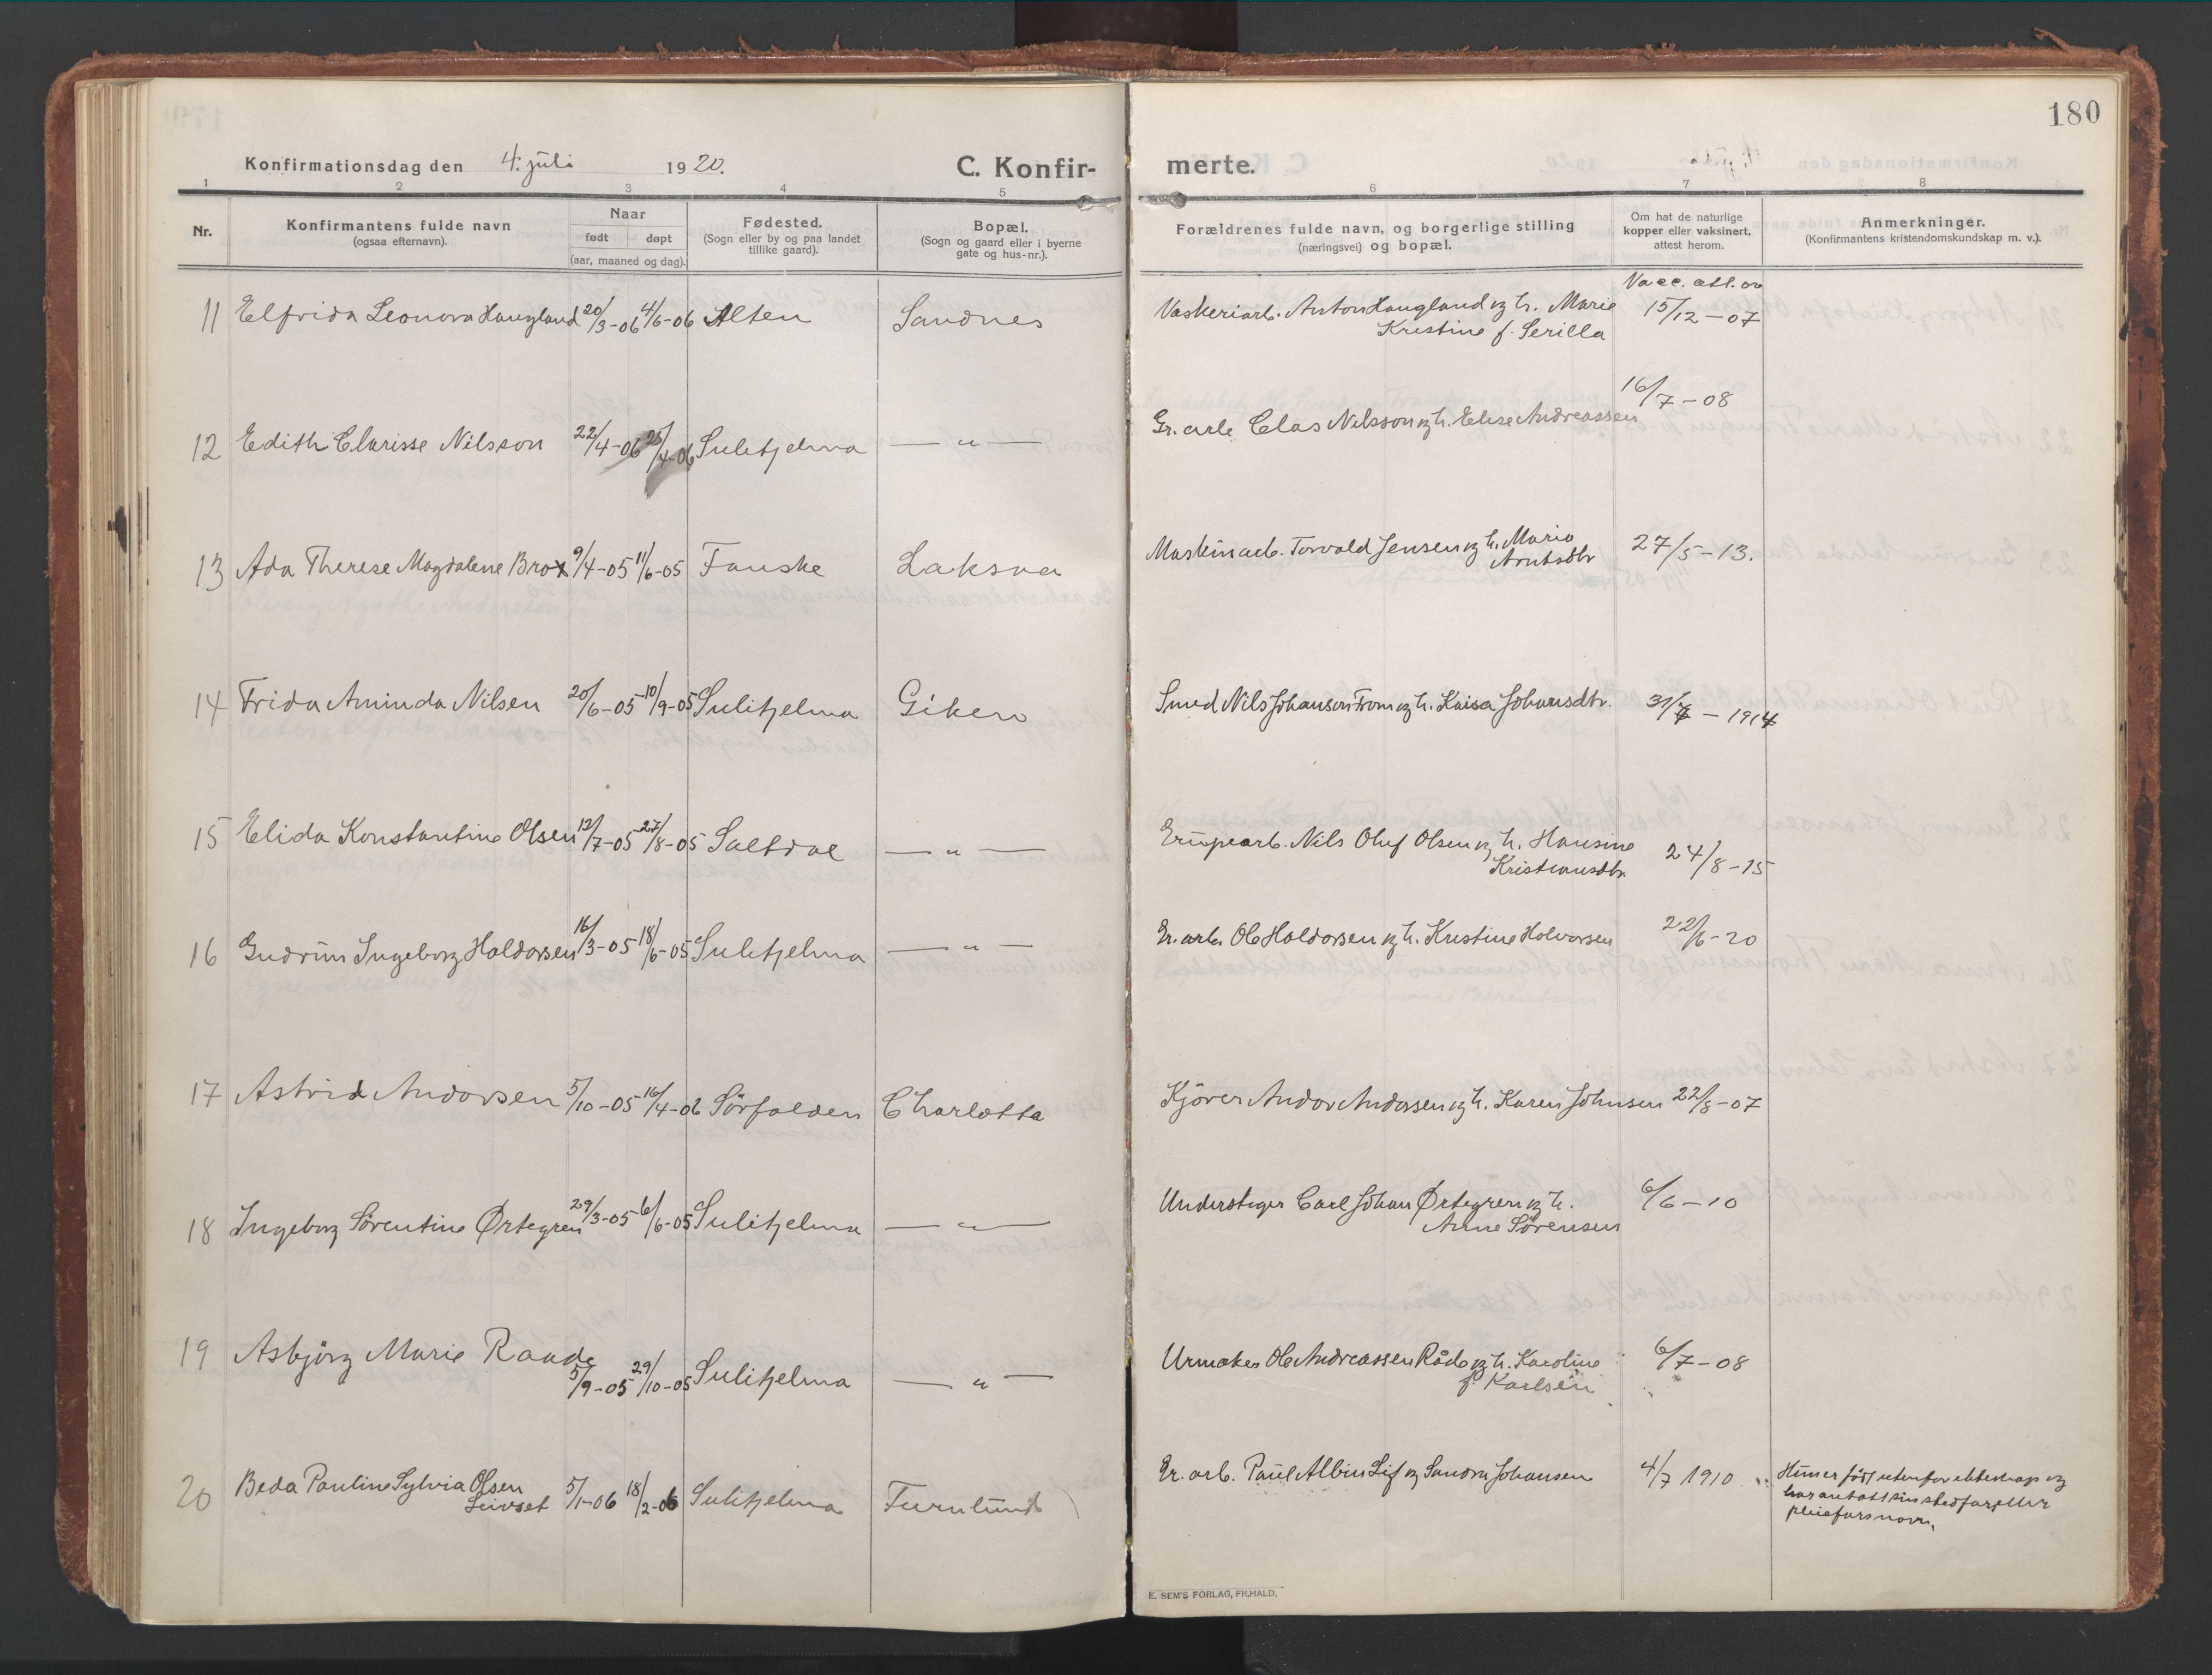 180
Konfirmationsdag den 4. juli 1920. C. Konfir- merte.
1 2 3 4 5 6 7 8
Nr. Konfirmantens fulde navn (ogsaa efternavn). Naar født døpt (aar, maaned og dag). Fødested. (Sogn eller by og paa landet tillike gaard). Bopæl. (Sogn og gaard eller i byerne gate og hus-nr.). Forældrenes fulde navn, og borgerlige stilling (næringsvei) og bopæl. Om hat de naturlige kopper eller vaksinert, attest herom. Anmerkninger. (Konfirmantens kristendomskundskap m. v.).
Vacc. att. av
11 Elfrida Leonora Haugland 20/3-06 4/6-06 Alten Sandnes Vaskeriarb. Anton Haugland og h. Marie 15/12-07
Kristine f. Serilla
16/7-08
12 Edith Clarisse Nilsson 22/4-06 25/4-06 Sulitjelma — " — Gr. arb. Clas Nilsson og h. Elise Andreassen
13 Ada Therese Magdalene Brox 9/4-05 11/6-05 Fauske Laksaa Maskinarb. Torvald Jensen og h. Maria 27/5-13.
Arntsdtr
14 Frida Aminda Nilsen 20/6-05 10/9-05 Sulitjelma Giken Smed Nils Johansen From og h. Kaisa Johansdtr. 31/7 - 1914
15 Elida Konstantine Olsen 12/7-05 27/8-05 Saltdal — " — Grubearb. Nils Oluf Olsen og h. Hansine 24/8-15
Kristiansdtr.
16 Gudrun Ingeborg Haldorsen 16/3-05 18/6-05 Sulitjelma — " — Gr. arb. Ole Haldorsen og h. Kristine Halvorsen 22/6-20
17 Astrid Andorsen 5/10-05 16/4-06 Sörfolden Charlotta Kjörer Andor Andorsen og h. Karen Johnsen 22/8-07
18 Ingeborg Sörentine Ørtegren 29/3-05 6/6-05 Sulitjelma — " — Understiger Carl Johan Ørtegren og h. 6/6-10
Anne Sörensen
19 Asbjörg Marie Raade 5/9-05 29/10-05 Sulitjelma — " — Urmaker Ole Andreassen Råde og h. Karoline 6/7-08
f. Karlsen
20 Beda Pauline Sylvia Olsen 5/1-06 18/2-06 Sulitjelma Furulund Gr. arb. Paul Albin Lif og Sandra Johansen 4/7 1910 Hun er født utenfor ekteskap og
Leivset har antatt sin stedfars eller
pleiefars navn.
E. SEM'S FORLAG, FR.HALD.